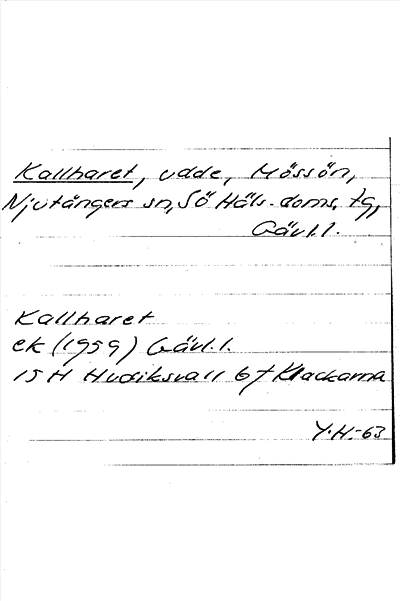 Kallharet, udde, Mössön,
Njutångers sn, Sö Häls. doms. tg,
Gävl. l.
Kallharet
ek (1959) Gävl. l.
15 H Hudiksvall 6 f Klackarna
Y.H.-63